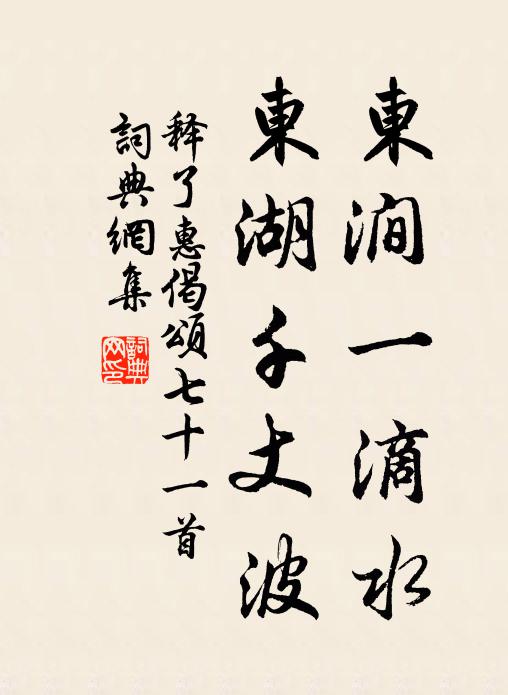 東澗一滴水
東湖千丈波
释了惠偈頌七十一首
詞典網集
詞典網印